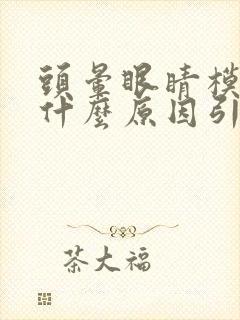 頭暈眼睛模
什麼原因引
茶大福